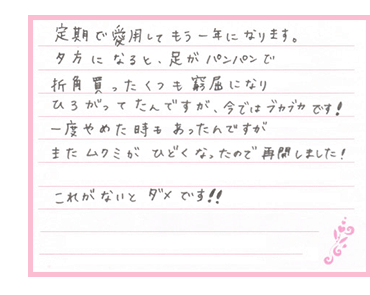 定期で愛用してもう一年になります。
夕方になると、足がパンパンで
折角買ったくつも窮屈になり
ひろがってたんですが、今ではブカブカです!
一度やめた時もあったんですが
またムクミがひどくなったので再開しました!
これがないとダメです!!